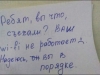 Ребят, вы что,
съехали? Ваш
wi-fi не работает 2
Надеюсь, ты всё в
порядке.